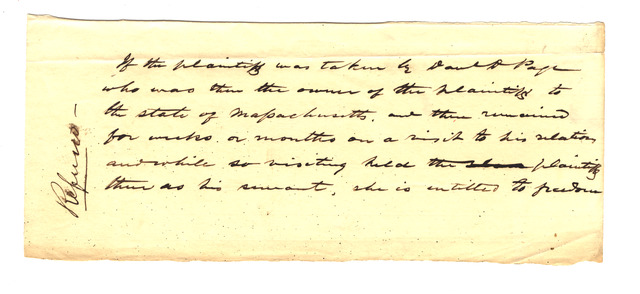 If the plaintiff was taken by Danl D Page
who was then the owner of the plaintiff to
the state of Massachusetts, and there remained
for weeks or months on a visit to his relations
and while so visiting held the slave plaintiff
there as his servant, she is entitled to freedom
Refused -